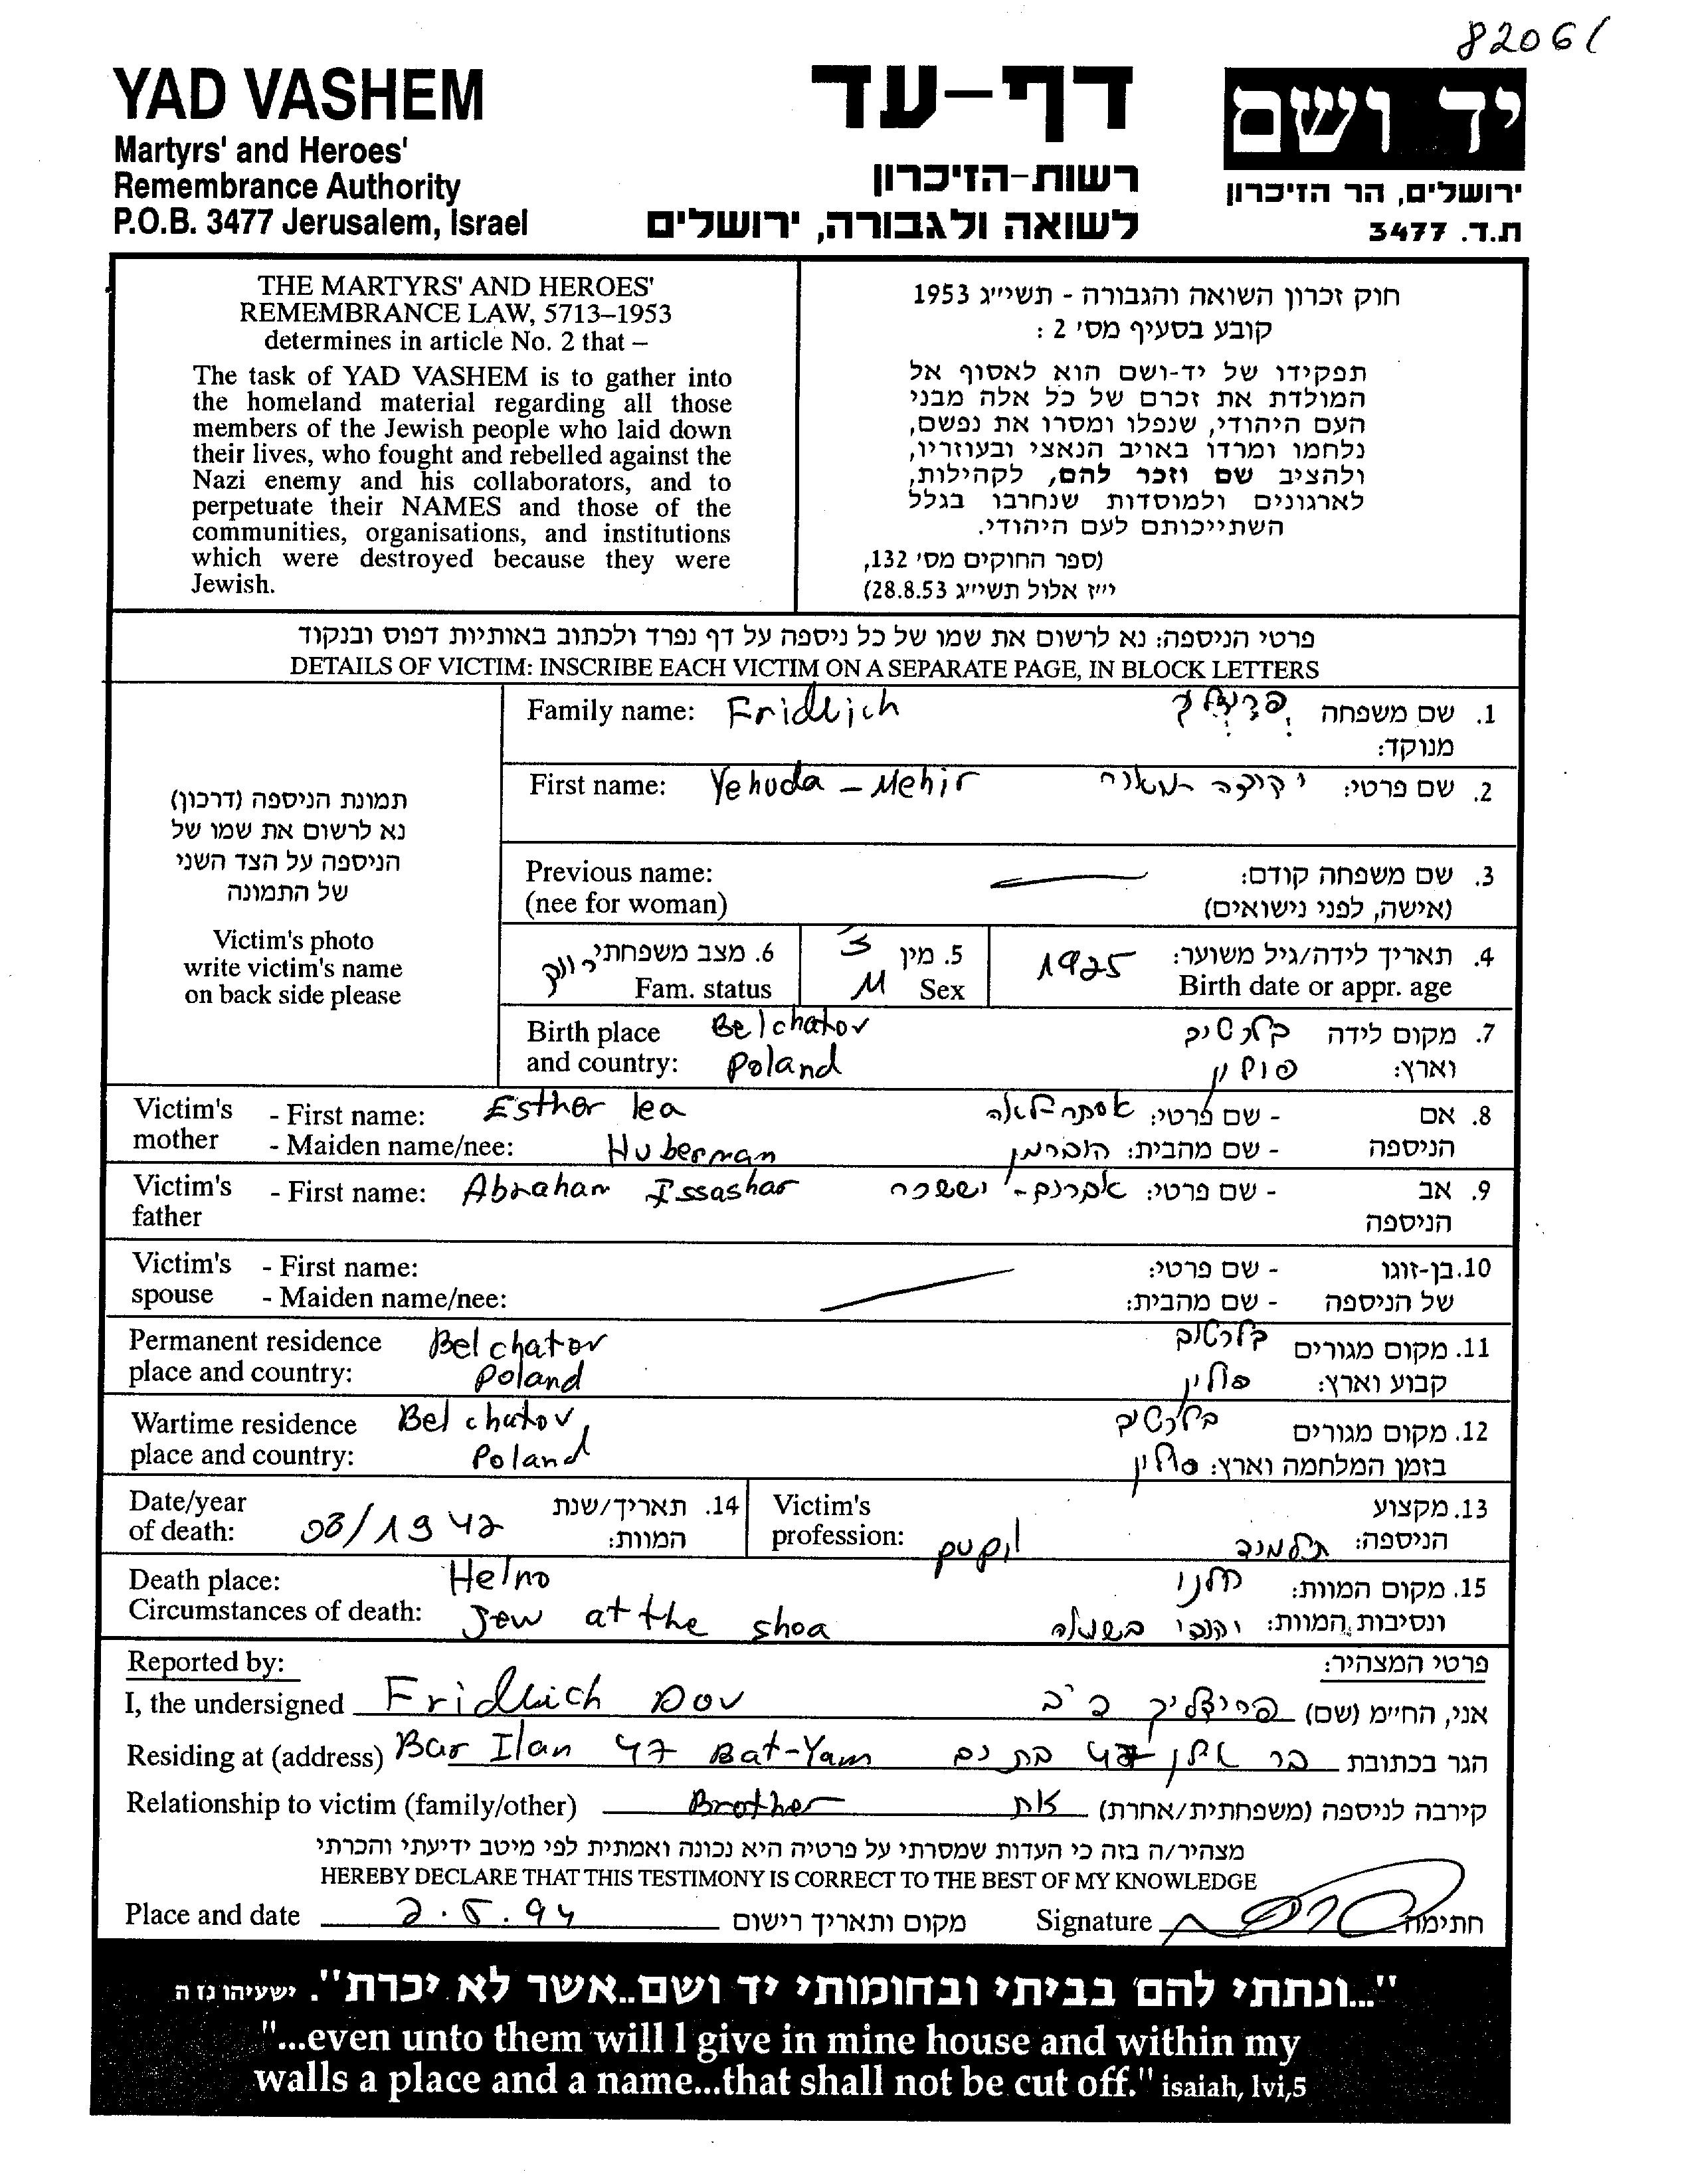 82061
YAD VASHEM
Martyrs' and Heroes'
Remembrance Authority
P.O.B. 3477 Jerusalem, Israel
דף-עד
רשות-הזיכרון
לשואה ולגבורה, ירושלים
יד ושם
ירושלים, הר הזיכרון
ת.ד. 3477
THE MARTYRS' AND HEROES'
REMEMBRANCE LAW, 5713–1953
determines in article No. 2 that –
The task of YAD VASHEM is to gather into
the homeland material regarding all those
members of the Jewish people who laid down
their lives, who fought and rebelled against the
Nazi enemy and his collaborators, and to
perpetuate their NAMES and those of the
communities, organisations, and institutions
which were destroyed because they were
Jewish.
חוק זכרון השואה והגבורה - תשי״ג 1953
קובע בסעיף מס' 2 :
תפקידו של יד-ושם הוא לאסוף אל
המולדת את זכרם של כל אלה מבני
העם היהודי, שנפלו ומסרו את נפשם,
נלחמו ומרדו באויב הנאצי ובעוזריו,
ולהציב שם וזכר להם, לקהילות,
לארגונים ולמוסדות שנחרבו בגלל
השתייכותם לעם היהודי.
(ספר החוקים מס' 132,
י״ז אלול תשי״ג 28.8.53)
פרטי הניספה: נא לרשום את שמו של כל ניספה על דף נפרד ולכתוב באותיות דפוס ובנקוד
DETAILS OF VICTIM: INSCRIBE EACH VICTIM ON A SEPARATE PAGE, IN BLOCK LETTERS
תמונת הניספה (דרכון)
נא לרשום את שמו של
הניספה על הצד השני
של התמונה
Victim's photo
write victim's name
on back side please
Family name: Fridlich 1. שם משפחה
מנוקד:
First name: Yehuda - Mehir 2. שם פרטי: יהודה - מאיר
Previous name: 3. שם משפחה קודם:
(nee for woman) (אישה, לפני נישואים)
4. תאריך לידה/גיל משוער: 1925 5. מין ז 6. מצב משפחתי רווק
Birth date or appr. age Sex M Fam. status
Birth place Belchatov 7. מקום לידה בלכטוב
and country: Poland וארץ: פולין
Victim's - First name: Esther lea 8. אם - שם פרטי: אסתר-לאה
mother - Maiden name/nee: Huberman הניספה - שם מהבית: הוברמן
Victim's - First name: Abraham Issashar 9. אב - שם פרטי: אברהם - יששכר
father הניספה
Victim's - First name: 10. בן-זוגו - שם פרטי:
spouse - Maiden name/nee: של הניספה - שם מהבית:
Permanent residence Belchatov 11. מקום מגורים בלכטוב
place and country: Poland קבוע וארץ: פולין
Wartime residence Belchatov, 12. מקום מגורים בלכטוב
place and country: Poland בזמן המלחמה וארץ: פולין
Date/year 14. תאריך/שנת Victim's 13. מקצוע
of death: 08/1942 המוות: profession: pupil הניספה: תלמיד
Death place: Helno 15. מקום המוות: חלנו
Circumstances of death: Jew at the shoa ונסיבות המוות: יהודי בשואה
Reported by: פרטי המצהיר:
I, the undersigned Fridlich Dov אני, החי״מ (שם) פרידליך דב
Residing at (address) Bar Ilan 47 Bat-Yam הגר בכתובת בר אילן 47 בת ים
Relationship to victim (family/other) Brother קירבה לניספה (משפחתית/אחרת) אח
מצהיר/ה בזה כי העדות שמסרתי על פרטיה היא נכונה ואמתית לפי מיטב ידיעתי והכרתי
HEREBY DECLARE THAT THIS TESTIMONY IS CORRECT TO THE BEST OF MY KNOWLEDGE
Place and date 2.5.94 מקום ותאריך רישום Signature חתימה
"...ונתתי להם בביתי ובחומותי יד ושם..אשר לא יכרת". ישעיהו נז ה
"...even unto them will I give in mine house and within my
walls a place and a name...that shall not be cut off." isaiah, lvi,5